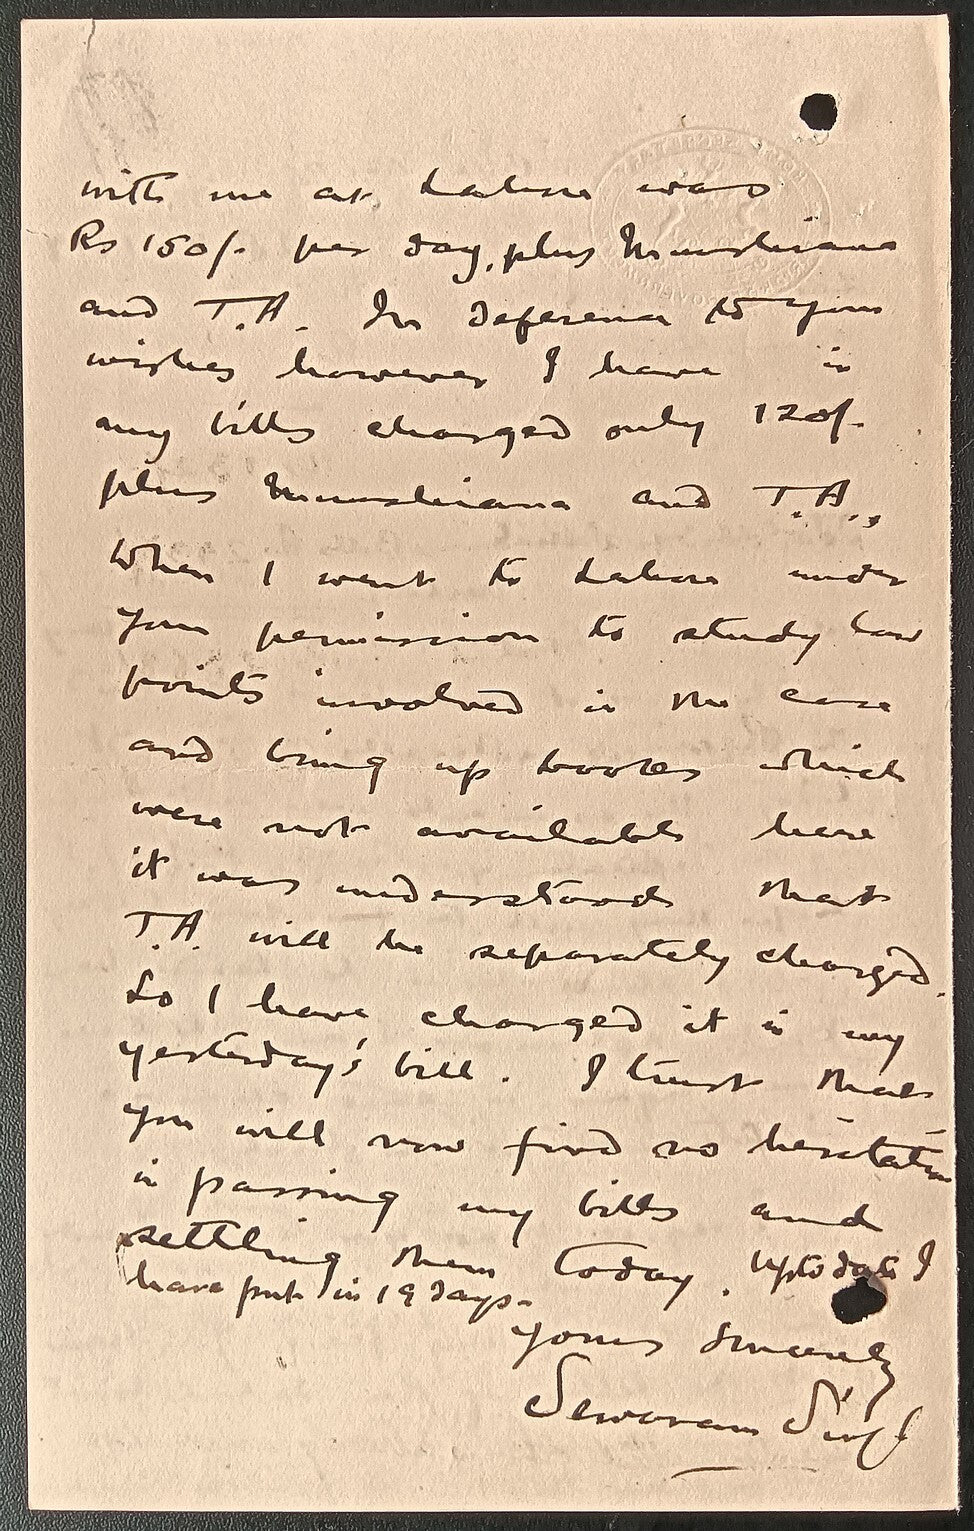 with me at Lahore was
Rs 150/- per day, plus Munshiana
and T.A. In deference to your
wishes however I have in
my bills charged only 120/-
plus Munshiana and T.A.,
When I went to Lahore under
your permission to study law
points involved in the case
and bring up books which
were not available here
it was understood that
T.A. will be separately charged.
So I have charged it in my
yesterday's bill. I trust that
you will now find no hesitation
in passing my bills and
settling them today. Upto date I
have put in 19 days.
Yours Sincerely
Sewaram Singh